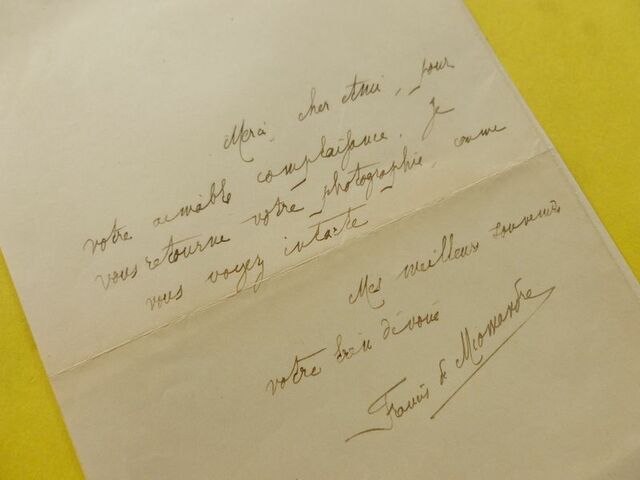 Merci, cher Ami, pour
votre aimable complaisance. Je
vous retourne votre photographie, comme
vous voyez intacte
Mes meilleurs souvenirs
votre bien dévoué
Francis de Miomandre